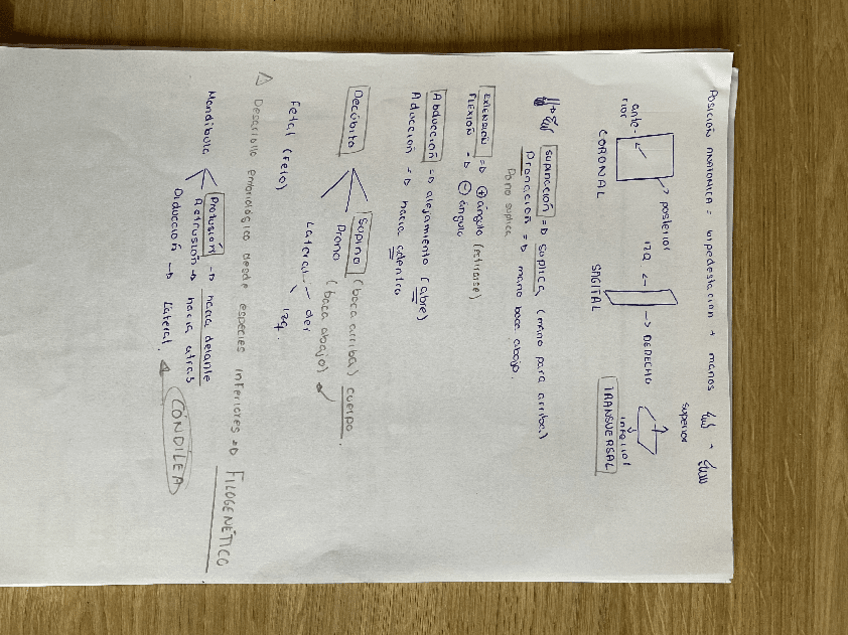 POSICIÓN ANATOMICA = bipedestacion + manos +
ante-
rior
posterior
CORONAL
IZQ
DERECHO
SAGITAL
superior
inferior
TRANSVERSAL
Supinación => suplica (mano para arriba)
Pronación => mano boca abajo.
Pono suplica
EXTENSION => + ángulo (estirarse)
FLEXIÓN => - ángulo
Abducción -> alejamiento (abre)
Aducción => hacia adentro
Decúbito
Supino (boca arriba) cuerpo.
Prono (boca abajo)
Lateral - der
izq.
Fetal (feto)
Desarrollo embriológico desde especies inferiores => FILOGENÉTICO
Mandibula
Protusión -> hacia delante
Retrusión -> hacia atras
Diducción -> Lateral.
CONDILEA